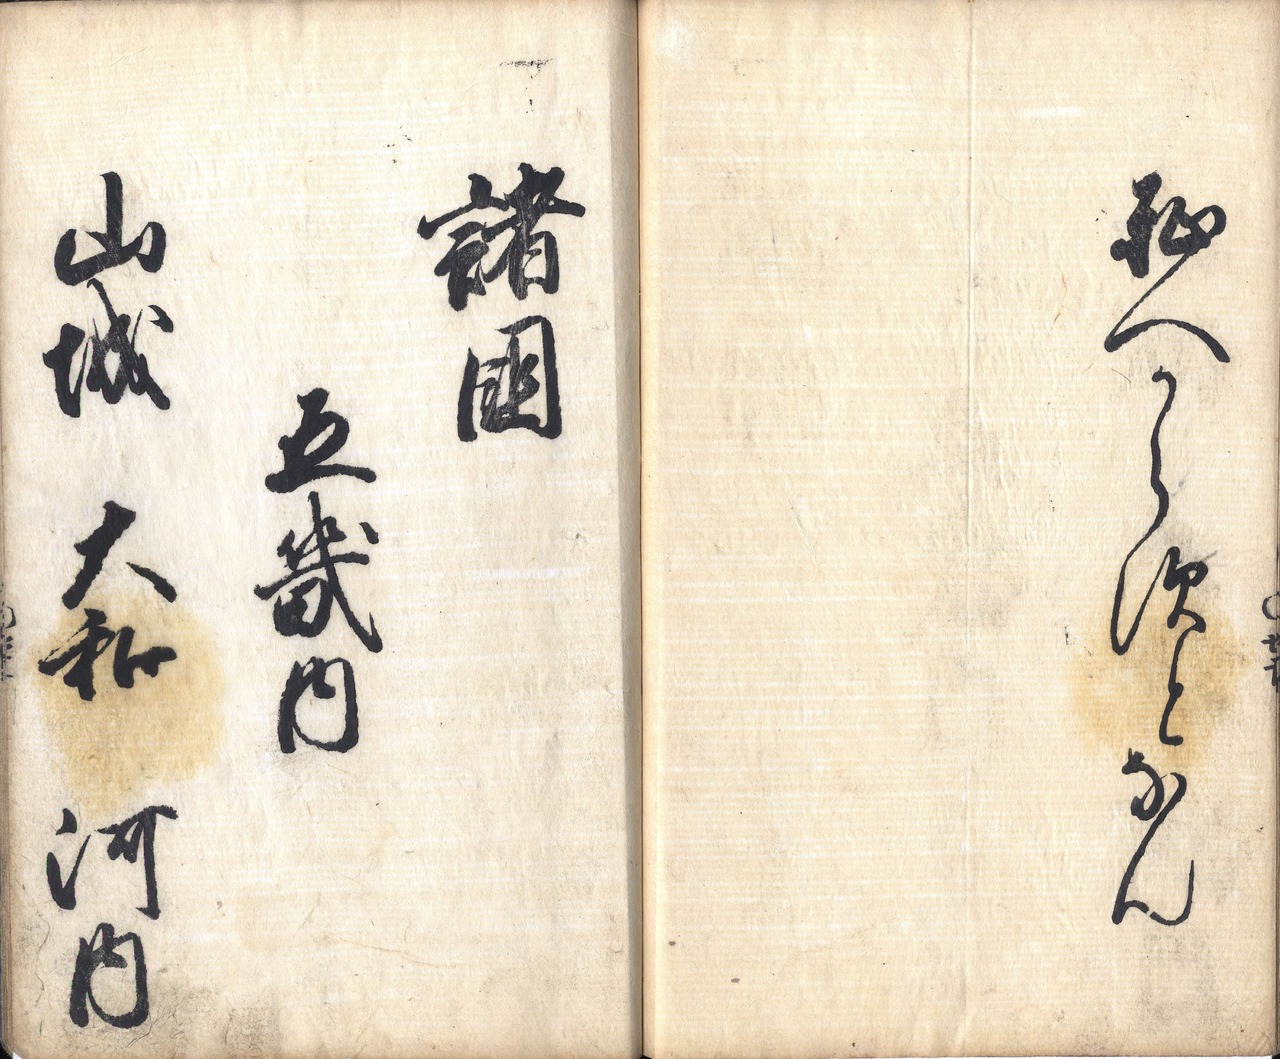 へからすとなん
諸國
五畿内
山城 大和 河内